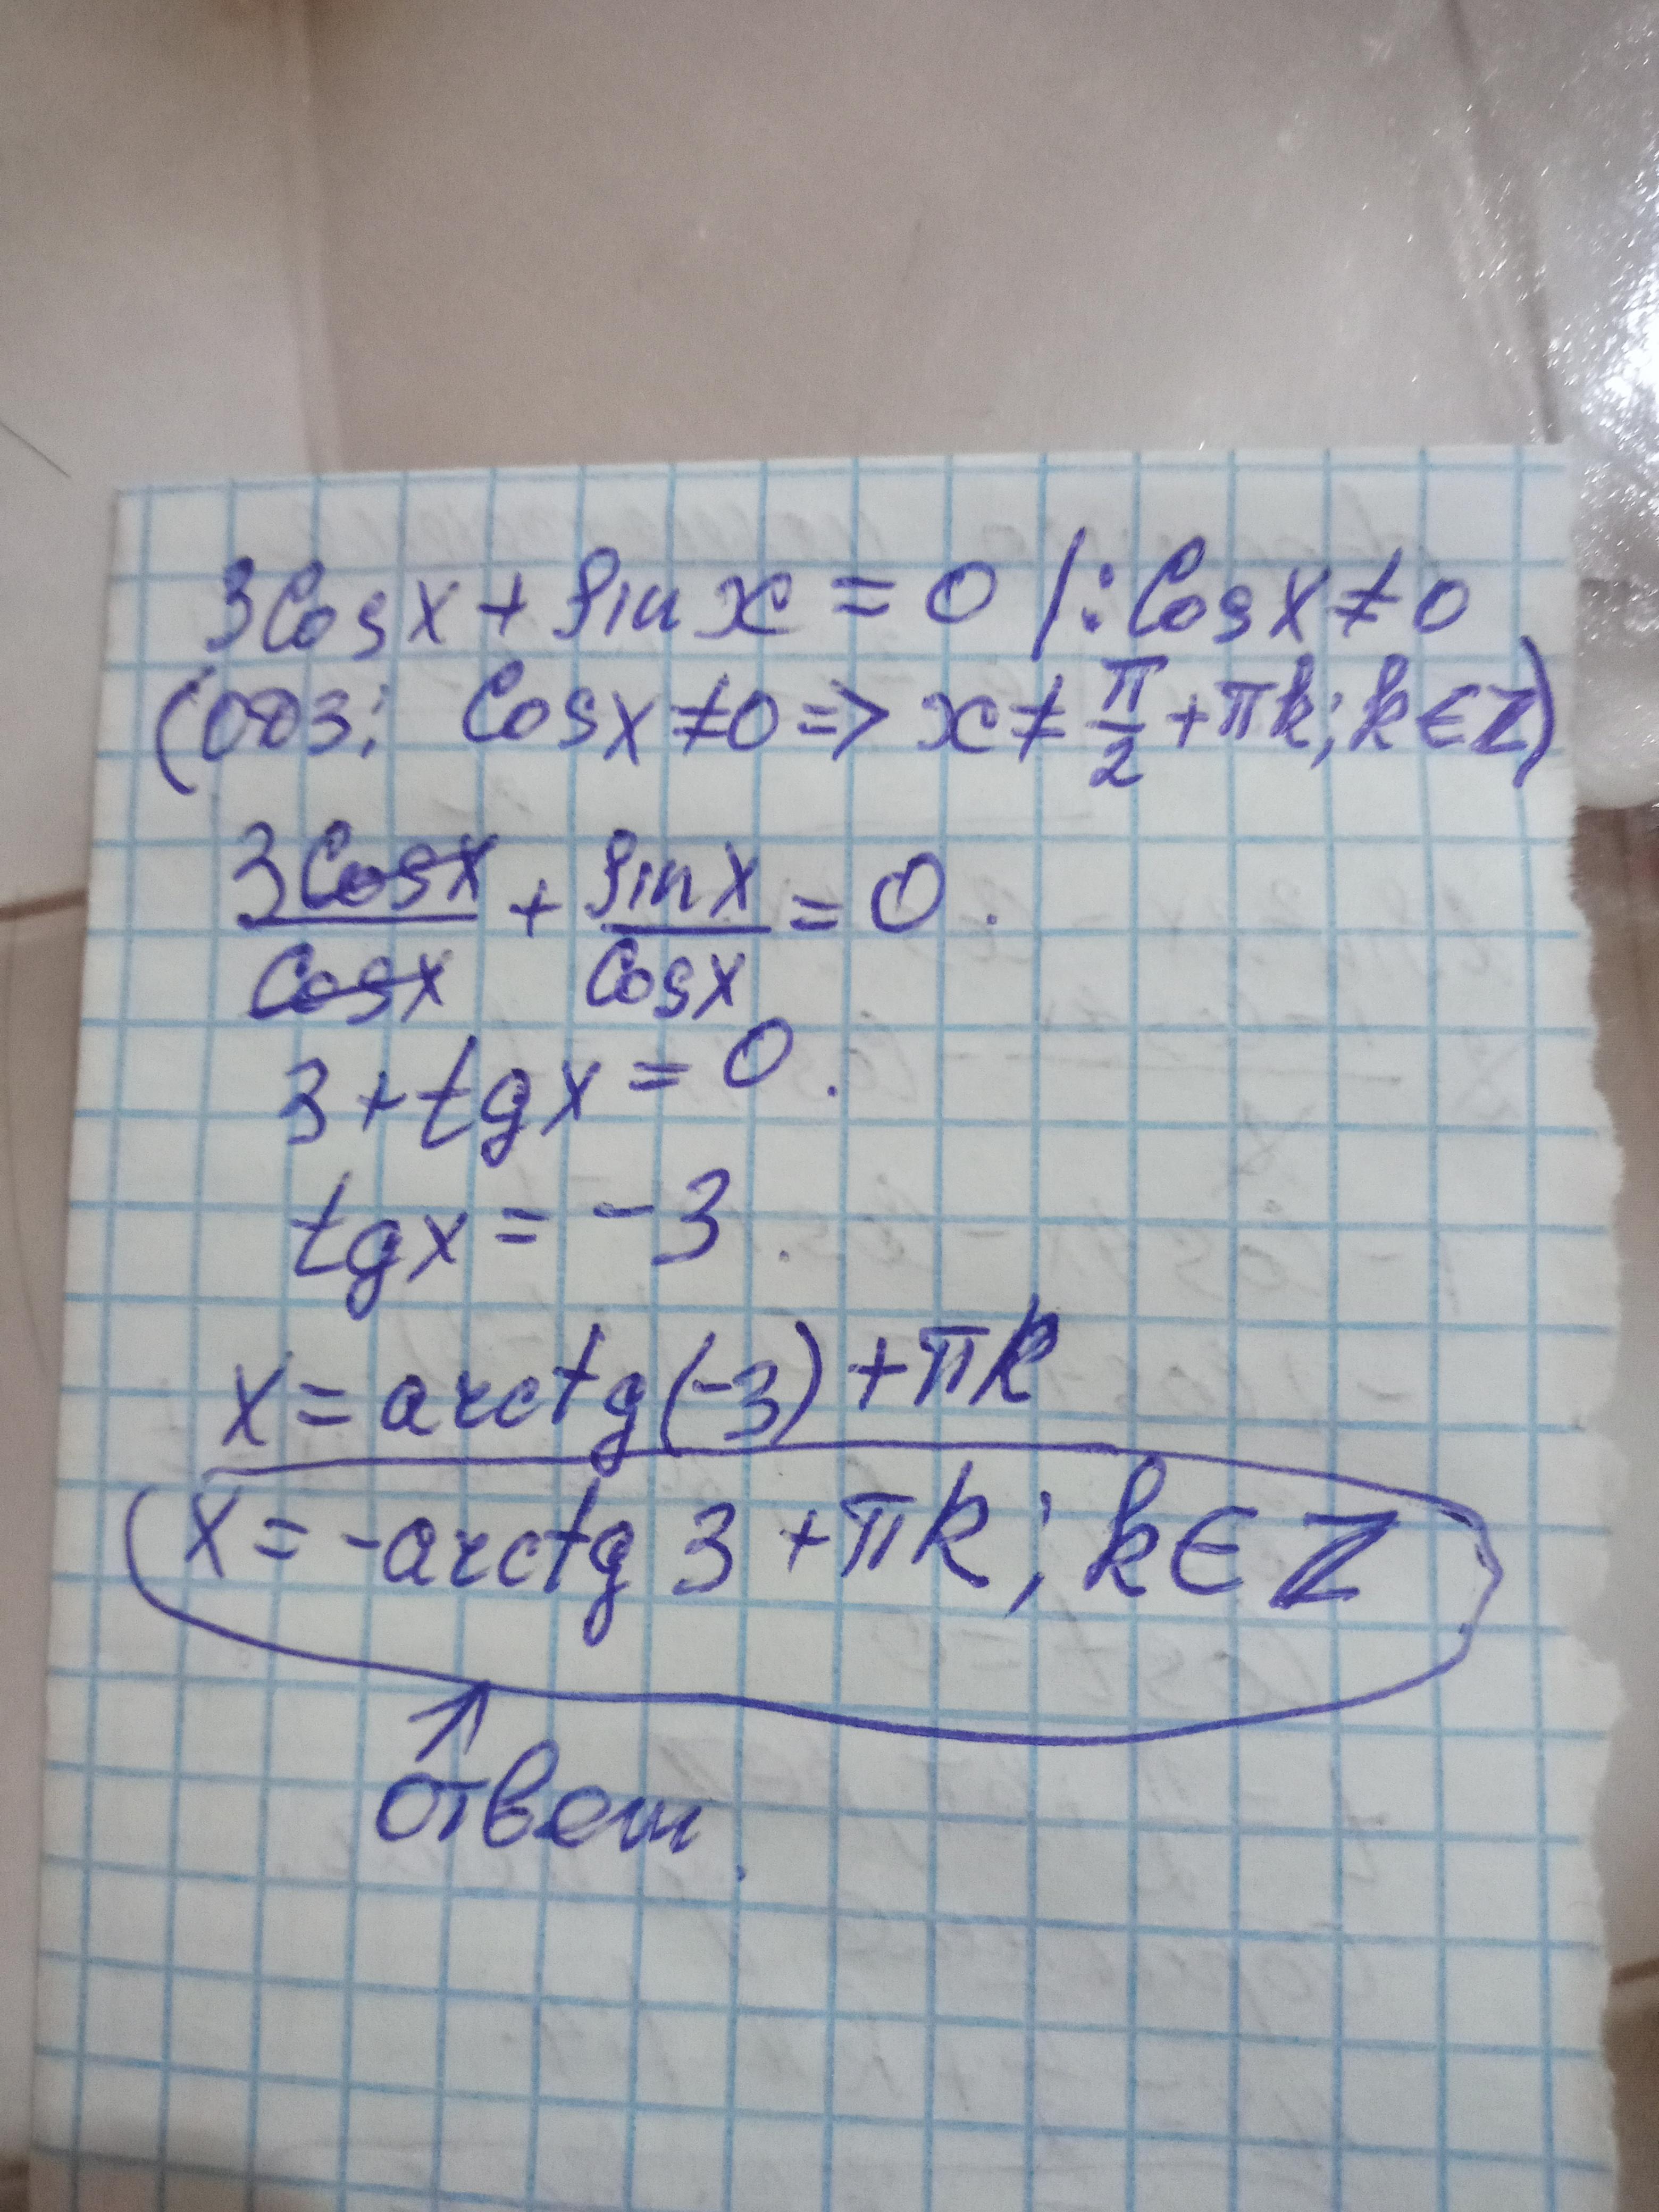 3Cosx + sin x = 0 /: Cosx ≠ 0
(ОДЗ: Cosx ≠ 0 => x ≠ π/2 + πk; k ∈ Z)
3Cosx/Cosx + sinx/Cosx = 0.
3 + tgx = 0.
tgx = -3.
x = arctg(-3) + πk
x = -arctg 3 + πk; k ∈ Z
ответ.